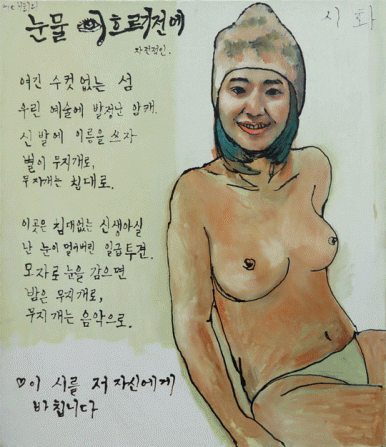 시 화
눈물 이 흐르기 전에
자전적인.
여긴 수컷 없는 섬
우린 예술에 발정난 암캐.
신발에 이름을 쓰자
별이 무지개로,
무지개는 침대로.
이곳은 침대없는 신생아실
난 눈이 멀어버린 일급투견.
모자로 눈을 감으면
밤은 무지개로,
무지개는 음악으로.
♡이 시를 저 자신에게
바칩니다